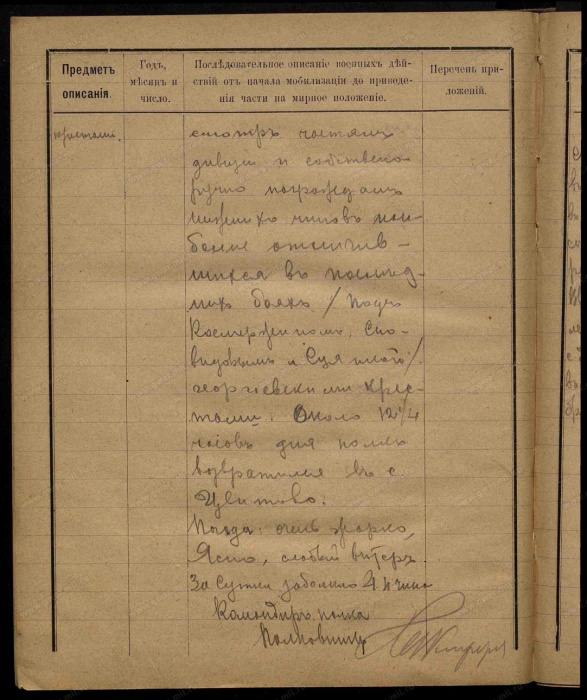 Предметъ
описанія.
Годъ,
мѣсяцъ и
число.
Послѣдовательное описаніе военныхъ дѣй-
ствій отъ начала мобилизаціи до приведе-
нія части на мирное положеніе.
Перечень при-
ложеній.
крестами.
смотръ частямъ
дивизіи и собственно-
ручно награждалъ
нижнихъ чиновъ наи-
болѣе отличив-
шихся въ послѣд-
нихъ бояхъ /подъ
и
георгіевскими крес-
тами. Около 12 1/4
часовъ дня полкъ
возвратился въ с.
Цвитово.
Погода: очень жарко,
Ясно, слабый вѣтеръ.
За сутки заболѣло 4 н. чина
Командиръ полка
Полковникъ